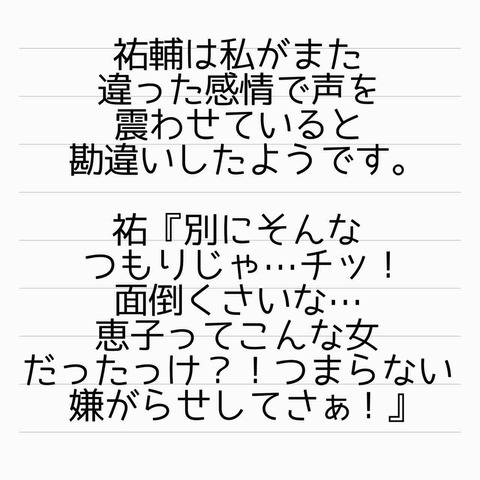 祐輔は私がまた
違った感情で声を
震わせていると
勘違いしたようです。
祐『別にそんな
つもりじゃ…チッ！
面倒くさいな…
恵子ってこんな女
だったっけ？！つまらない
嫌がらせしてさぁ！』